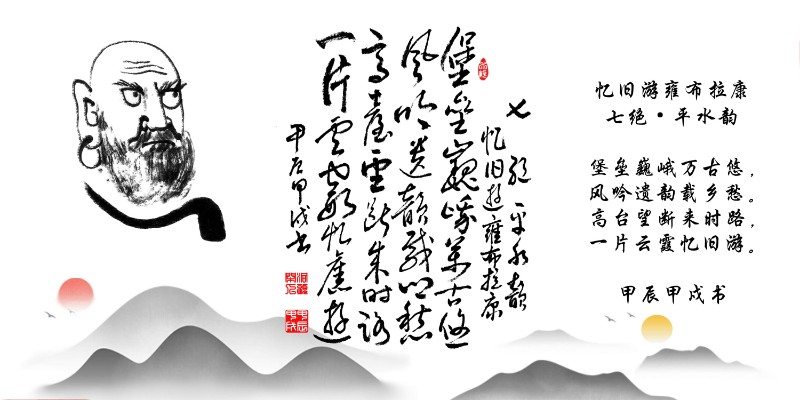 七绝 平水韻
忆旧遊雍布拉康
堡壘巍峨萬古悠
風吟遗韻載乡愁
高臺望断来时路
一片雲霞忆舊遊
甲辰甲戌书
甲辰
甲戌
忆旧游雍布拉康
七绝·平水韵
堡垒巍峨万古悠,
风吟遗韵载乡愁。
高台望断来时路,
一片云霞忆旧游。
甲辰甲戌书